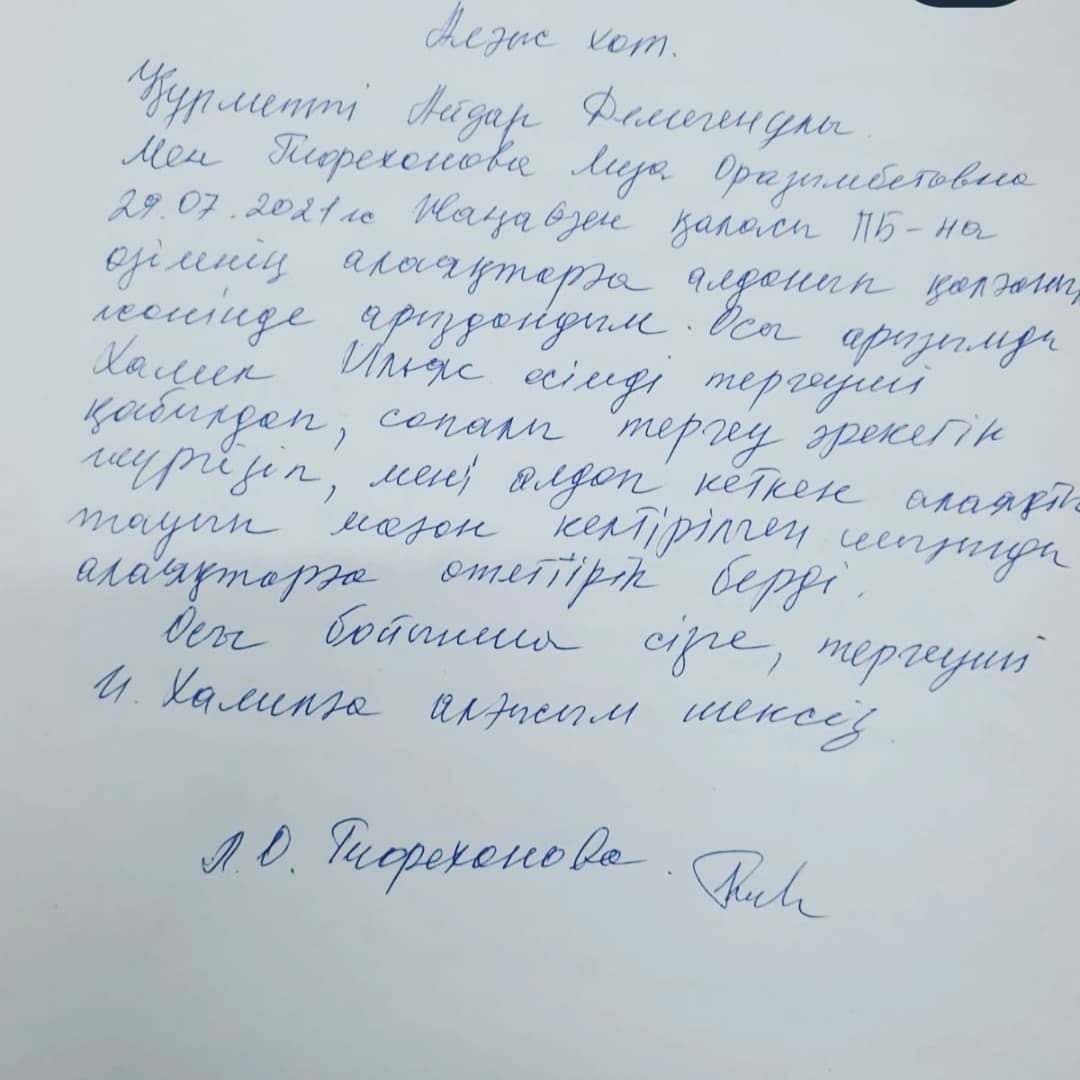 Алғыс хат.
Құрметті Айдар Демегенұлы
Мен Тюреханова Лиза Оразымбетовна
29.07.2021ж Жаңаөзен қаласы ПБ-на
өзімнің алаяқтарға алданып қалғаным
жөнінде арыздандым. Осы арызымды
Халық Ильяс есімді тергеуші
қабылдап, сапалы тергеу әрекетін
жүргізіп, мені алдап кеткен алаяқты
тауып маған келтірілген шығынды
алаяқтарға өтеттіріп берді.
Осы бойынша сізге, тергеуші
И. Халыққа алғысым шексіз.
Л.О. Тюреханова.